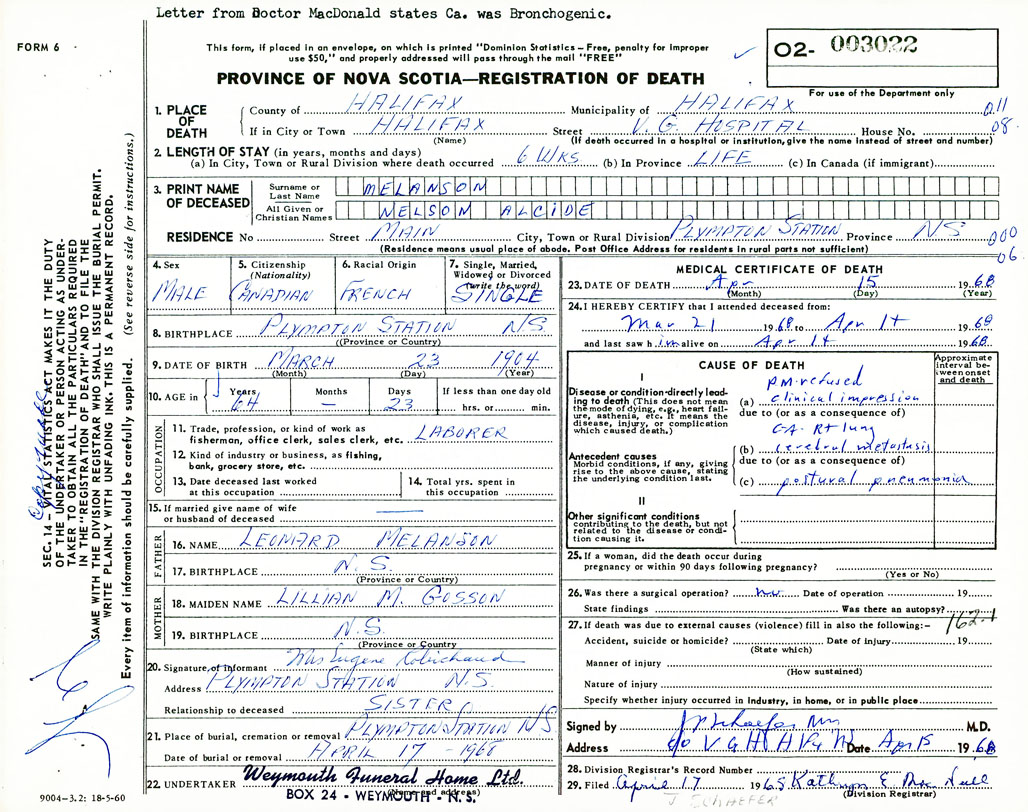 Letter from Doctor MacDonald states Ca. was Bronchogenic.
FORM 6
This form, if placed in an envelope, on which is printed "Dominion Statistics – Free, penalty for improper
use $50," and properly addressed will pass through the mail "FREE"
O2- 003022
For use of the Department only
PROVINCE OF NOVA SCOTIA—REGISTRATION OF DEATH
1. PLACE OF DEATH
County of HALIFAX Municipality of HALIFAX 011
If in City or Town HALIFAX Street V. G. HOSPITAL House No. 08
(Name) (If death occurred in a hospital or institution, give the name instead of street and number)
2. LENGTH OF STAY (in years, months and days)
(a) In City, Town or Rural Division where death occurred 6 WKS (b) In Province LIFE (c) In Canada (if immigrant)
3. PRINT NAME OF DECEASED
Surname or Last Name MELANSON
All Given or Christian Names NELSON ALCIDE
RESIDENCE No Street MAIN City, Town or Rural Division PLYMPTON STATION Province NS 000
(Residence means usual place of abode. Post Office Address for residents in rural parts not sufficient) 06
4. Sex MALE
5. Citizenship (Nationality) CANADIAN
6. Racial Origin FRENCH
7. Single, Married, Widowed or Divorced (write the word) SINGLE
8. BIRTHPLACE PLYMPTON STATION NS
(Province or Country)
9. DATE OF BIRTH MARCH 23 1904
(Month) (Day) (Year)
10. AGE in Years 64 Months – Days 23 If less than one day old
hrs. or min.
OCCUPATION
11. Trade, profession, or kind of work as
fisherman, office clerk, sales clerk, etc. LABORER
12. Kind of industry or business, as fishing,
bank, grocery store, etc.
13. Date deceased last worked
at this occupation
14. Total yrs. spent in
this occupation
15. If married give name of wife
or husband of deceased —
FATHER
16. NAME LEONARD MELANSON
17. BIRTHPLACE N.S.
(Province or Country)
MOTHER
18. MAIDEN NAME LILLIAN M. GOSSON
19. BIRTHPLACE N.S.
(Province or Country)
20. Signature of informant Mrs Eugene Robichaud
Address PLYMPTON STATION N.S.
Relationship to deceased SISTER
21. Place of burial, cremation or removal PLYMPTON STATION NS
Date of burial or removal APRIL 17 - 1968
22. UNDERTAKER Weymouth Funeral Home Ltd.
(Name and address)
BOX 24 - WEYMOUTH - N. S.
MEDICAL CERTIFICATE OF DEATH
23. DATE OF DEATH Apr 15 1968
(Month) (Day) (Year)
24. I HEREBY CERTIFY that I attended deceased from:
Mar 21 1968 to Apr 14 1968
and last saw him alive on Apr 14 1968
CAUSE OF DEATH
Approximate interval between onset and death
I
Disease or condition directly leading to death (This does not mean
the mode of dying, e.g., heart failure, asthenia, etc. It means the
disease, injury, or complication
which caused death.)
P.M. refused
(a) clinical impression
due to (or as a consequence of)
CA. Rt lung
(b) cerebral metastasis
due to (or as a consequence of)
(c) postural pneumonia
Antecedent causes
Morbid conditions, if any, giving
rise to the above cause, stating
the underlying condition last.
II
Other significant conditions
contributing to the death, but not
related to the disease or condition causing it.
25. If a woman, did the death occur during
pregnancy or within 90 days following pregnancy?
(Yes or No)
26. Was there a surgical operation? no Date of operation 19
State findings Was there an autopsy?
162.1
27. If death was due to external causes (violence) fill in also the following:–
Accident, suicide or homicide? Date of injury 19
(State which)
Manner of injury
(How sustained)
Nature of injury
Specify whether injury occurred in industry, in home, or in public place
Signed by J Schaefer M.D.
Address c/o V G H Hfx N Date Apr 15 1968
28. Division Registrar's Record Number
29. Filed April 17 1968 Kathryn E.
(Division Registrar)
J SCHAEFER
SEC. 14 – VITAL STATISTICS ACT MAKES IT THE DUTY
OF THE UNDERTAKER OR PERSON ACTING AS UNDERTAKER TO OBTAIN ALL THE PARTICULARS REQUIRED
IN THE "REGISTRATION OF DEATH" AND TO FILE THE
SAME WITH THE DIVISION REGISTRAR WHO SHALL ISSUE THE BURIAL PERMIT.
WRITE PLAINLY WITH UNFADING INK. THIS IS A PERMANENT RECORD.
Every item of information should be carefully supplied. (See reverse side for instructions.)
9004–3.2: 18-5-60